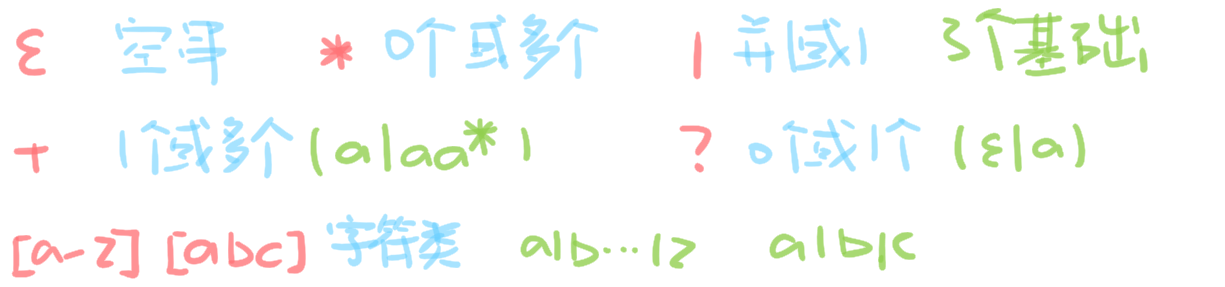 ε 空串 * 0个或多个 | 并(或) 3个基础
+ 1个或多个 (a|aa*) ? 0个或1个 (ε|a)
[a-z] [abc] 字符类 a|b...|z a|b|c